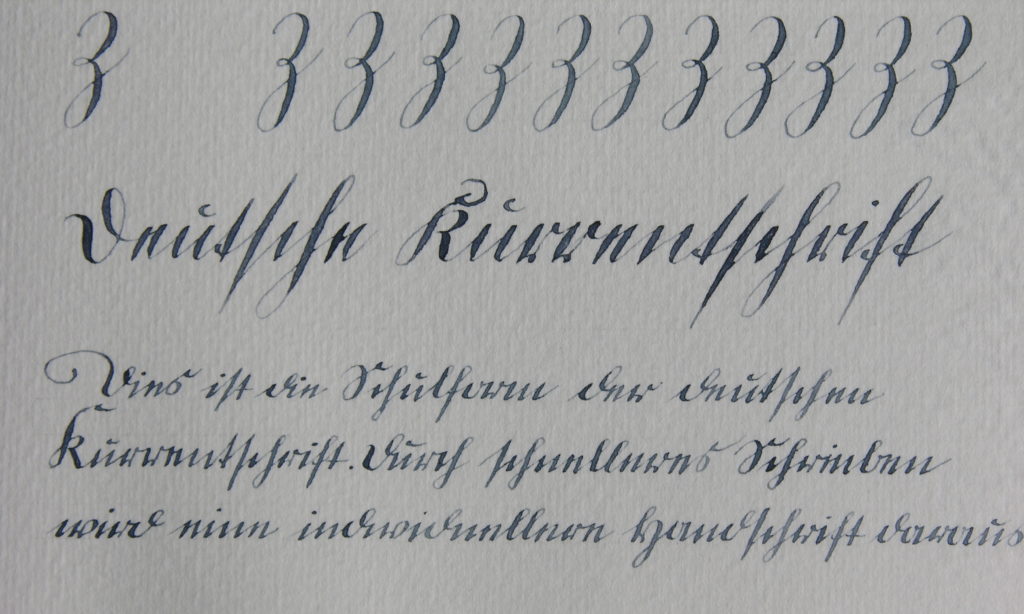 z z z z z z z z z z z z
Deutsche Kurrentschrift
Dies ist die Schulform der deutschen
Kurrentschrift. Durch schnelleres Schreiben
wird eine individuellere Handschrift daraus